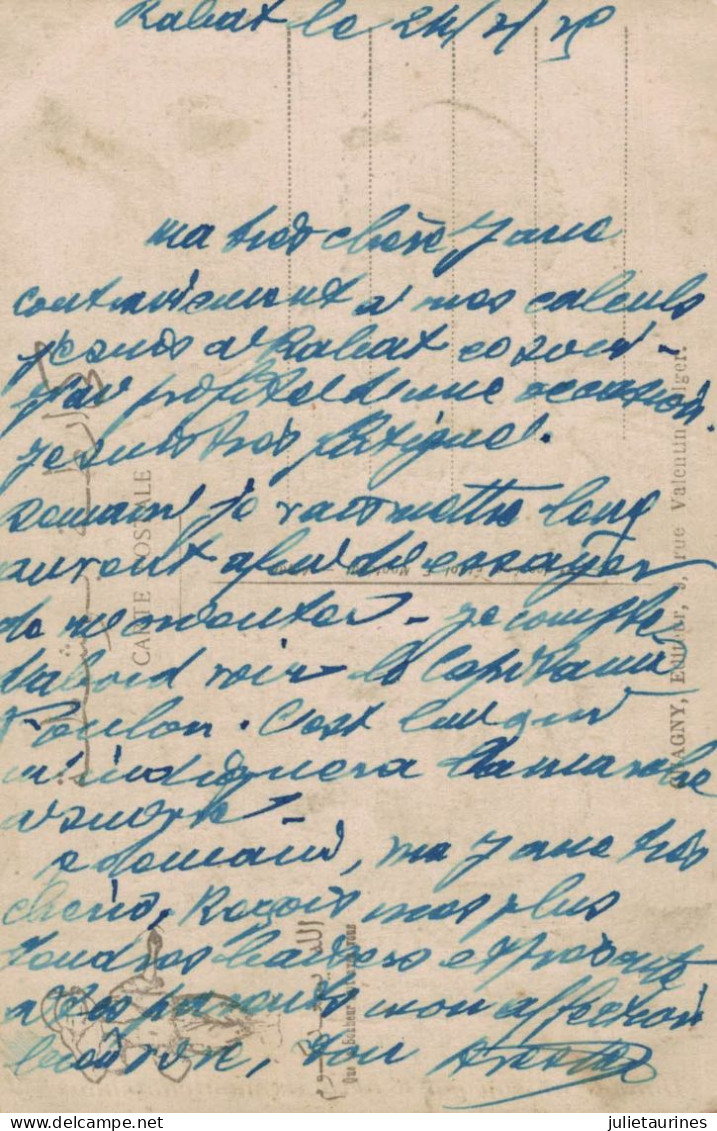 Rabat le 24/2/25
ma très chère Jane
contrairement a mes calculs
je suis a Rabat ce soir -
j'ai profité d'une occasion.
je suis très fatigué.
Demain je vais mettre long
avant afin de essayer
de me - je compte
d'abord voir le Capitaine
Poulon. C'est lui qui
m'indiquera la marche
a suivre -
a demain, ma Jane très
chérie, Reçois mes plus
tendres baisers et présente
a tes parents mon affection
ton
CARTE POSTALE
كارطة بوسطالية
EDITEUR, 9, rue Valentin, Alger.
Que le Bonheur vous
julietaurines